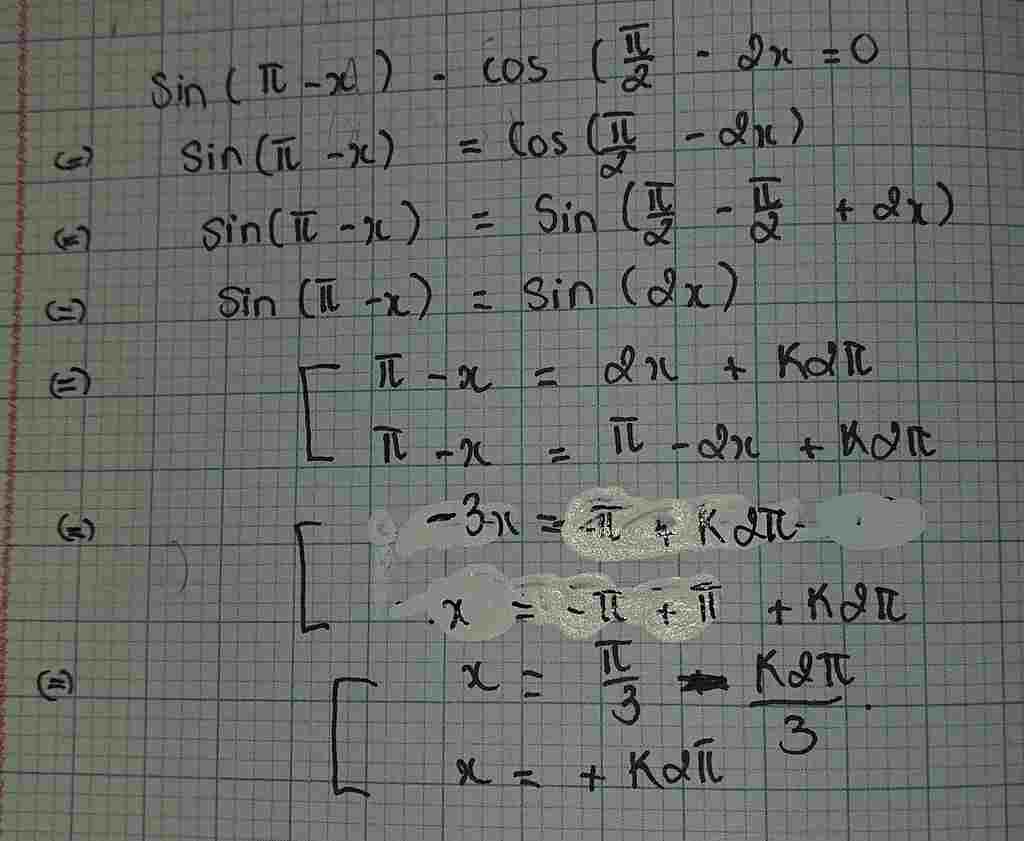 sin(π - x) - cos (π/2 - 2x = 0
(=) sin(π - x) = cos(π/2 - 2x)
(=) sin(π - x) = sin (π/2 - π/2 + 2x)
(=) sin (π - x) = sin (2x)
(=) [ π - x = 2x + K2π
π - x = π - 2x + K2π
(=) [ -3x = -π + K2π
x = -π + π + K2π
(=) [ x = π/3 - K2π/3
x = + K2π